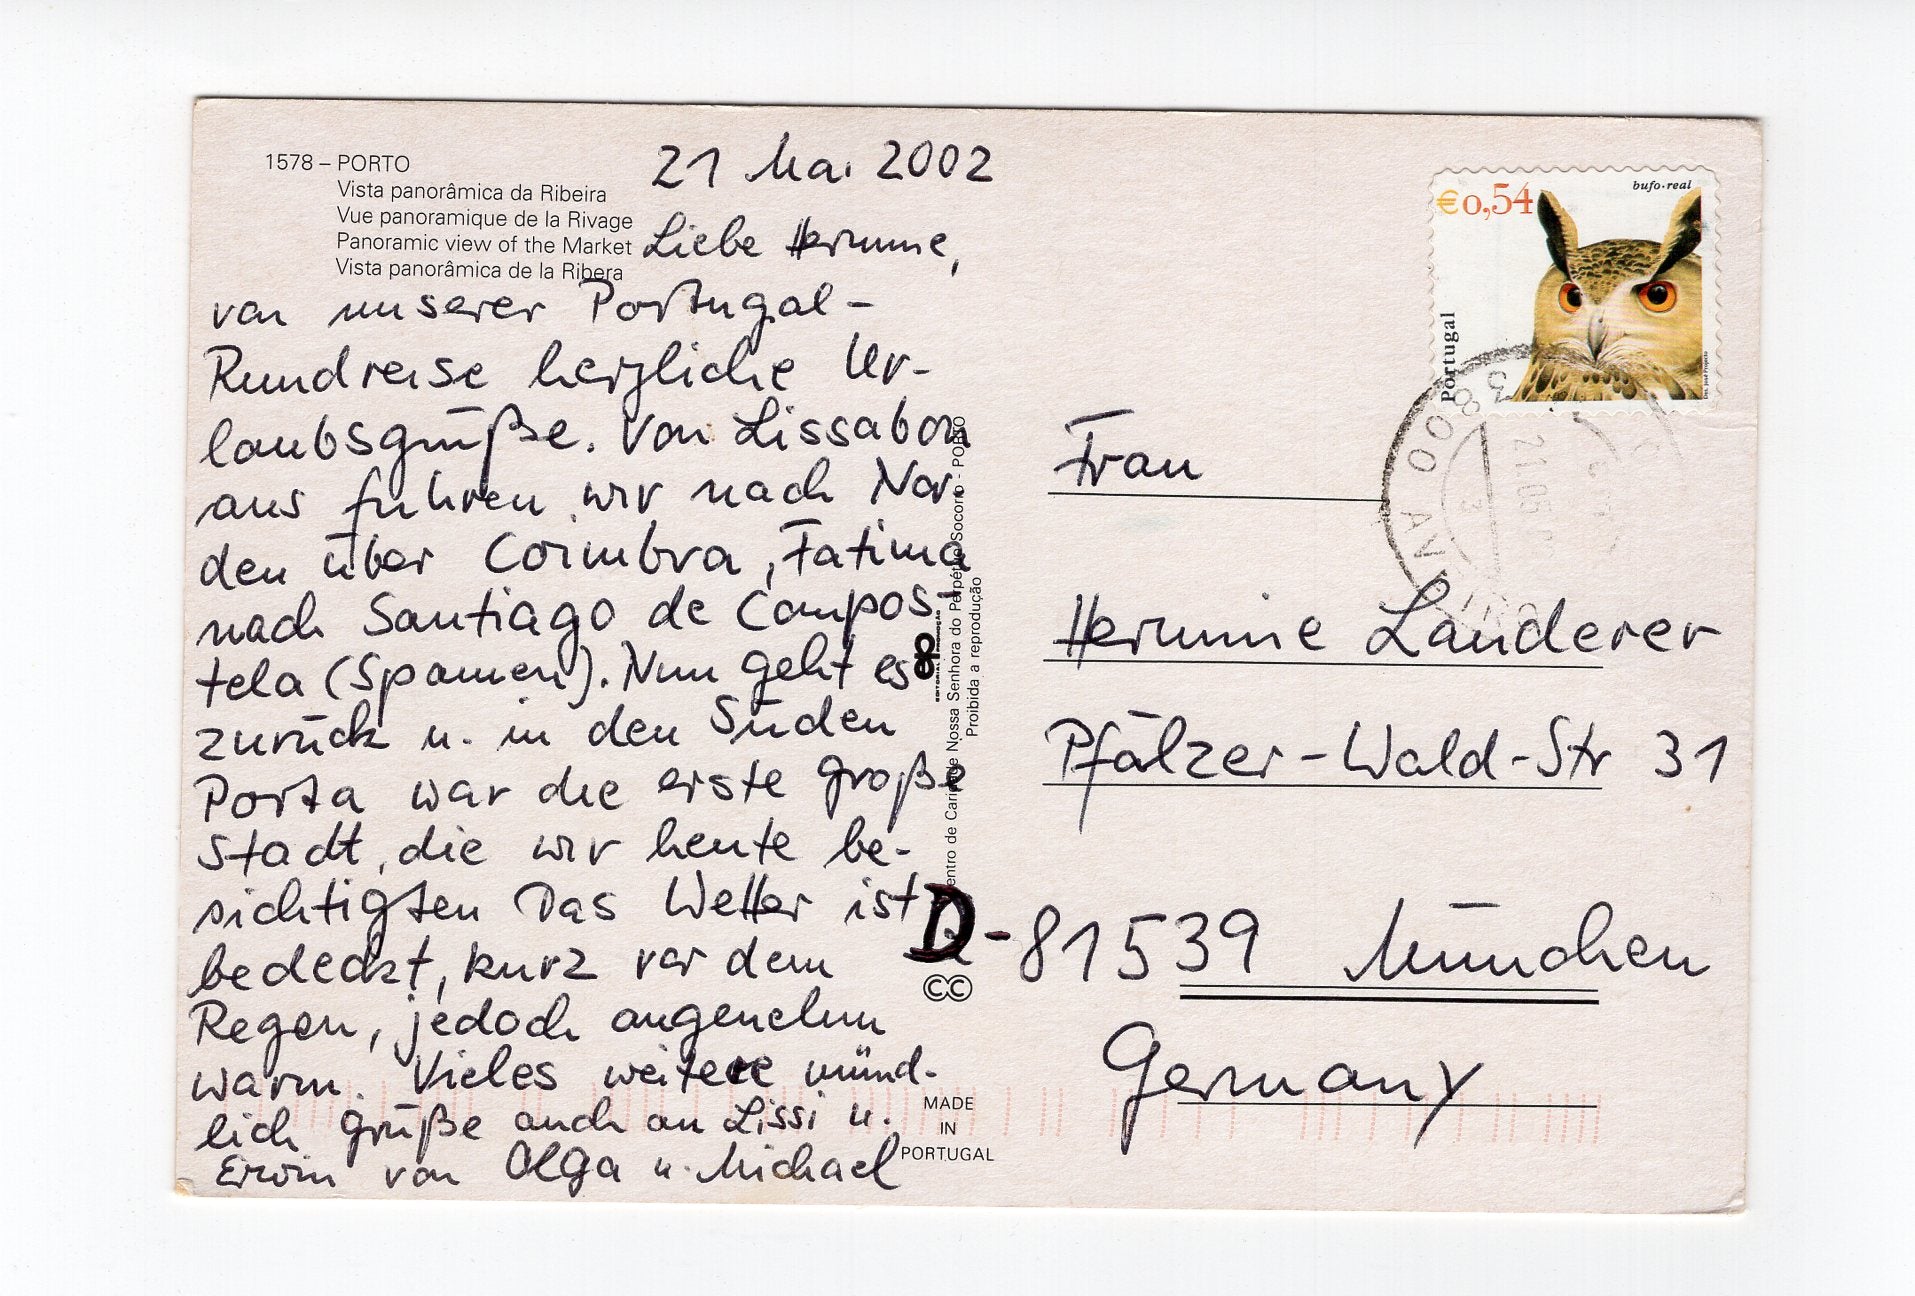 1578 – PORTO
Vista panorâmica da Ribeira
Vue panoramique de la Rivage
Panoramic view of the Market
Vista panorâmica de la Ribera
21 Mai 2002
Liebe Hermine,
von unserer Portugal-
Rundreise herzliche Ur-
laubsgrüße. Von Lissabon
aus fuhren wir nach Nor-
den über Coimbra, Fatima
nach Santiago de Compos-
tela (Spanien). Nun geht es
zurück u. in den Süden
Porta war die erste große
Stadt, die wir heute be-
sichtigten Das Wetter ist
bedeckt, kurz vor dem
Regen, jedoch angenehm
warm. Vieles weitere münd-
lich Grüße auch an Lissi u.
Erwin von Olga u. Michael
Nossa Senhora do Perpétuo Socorro - PORTO
Proibida a reprodução
MADE
IN
PORTUGAL
€0,54
bufo-real
Portugal
21.05
Frau
Hermine Landerer
Pfälzer-Wald-Str 31
D-81539 München
Germany